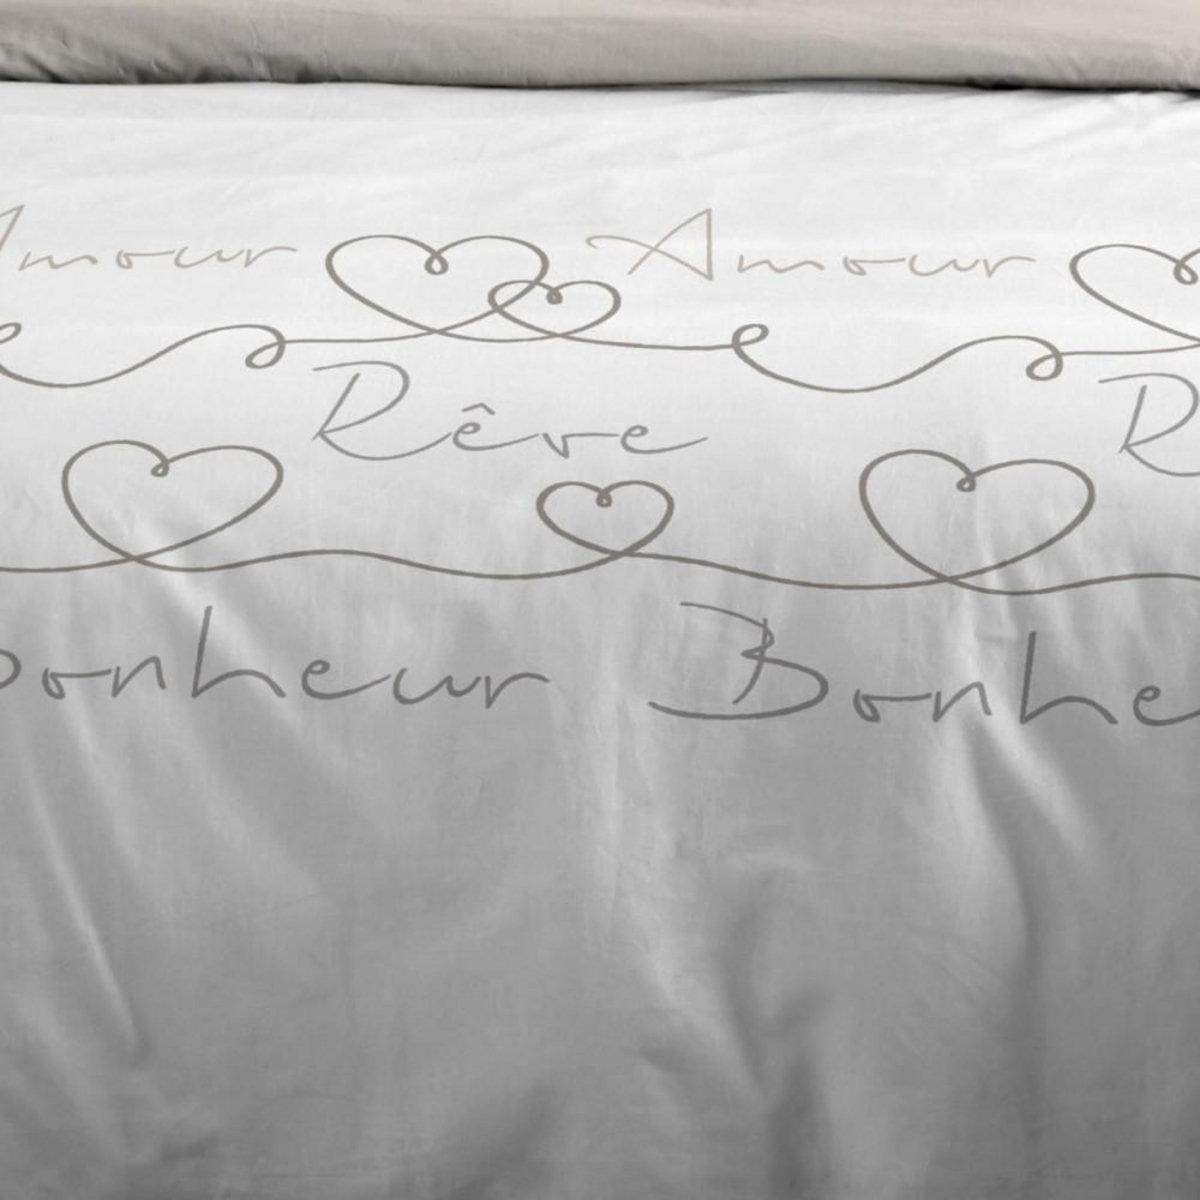 Amour Amour
Rêve R
Bonheur Bonhe